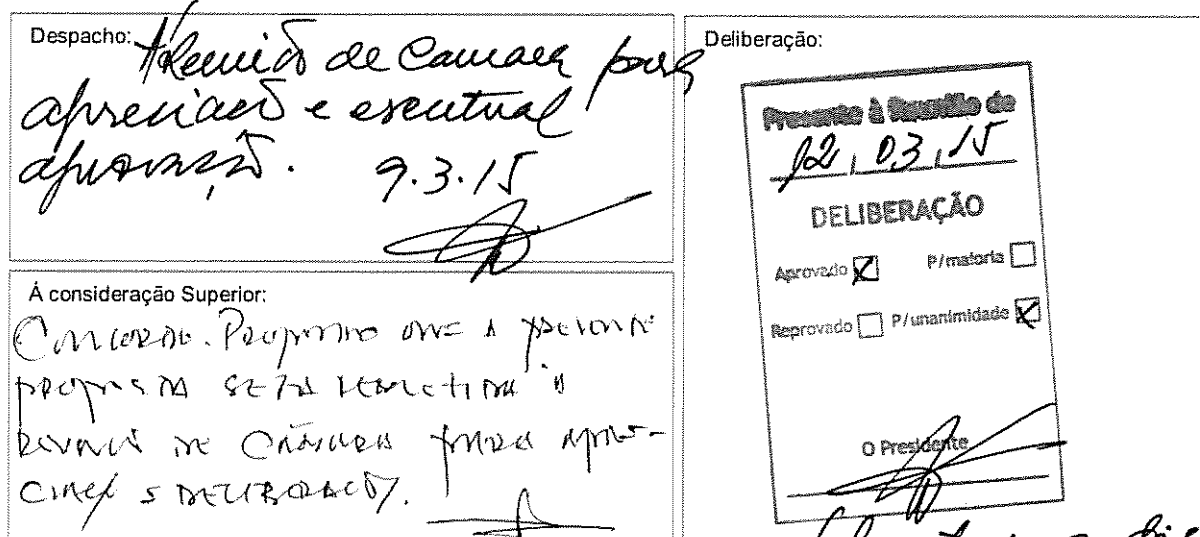 Despacho: À Reunião de Camara para
apreciação e eventual
aprovação. 9.3.15
À consideração Superior:
Concordo. Proponho que a presente
proposta seja remetida à
reunião de Câmara para apre-
ciação e deliberação.
Deliberação:
Presente à Reunião de
12, 03, 15
DELIBERAÇÃO
Aprovado P/maioria
Reprovado P/unanimidade
O Presidente